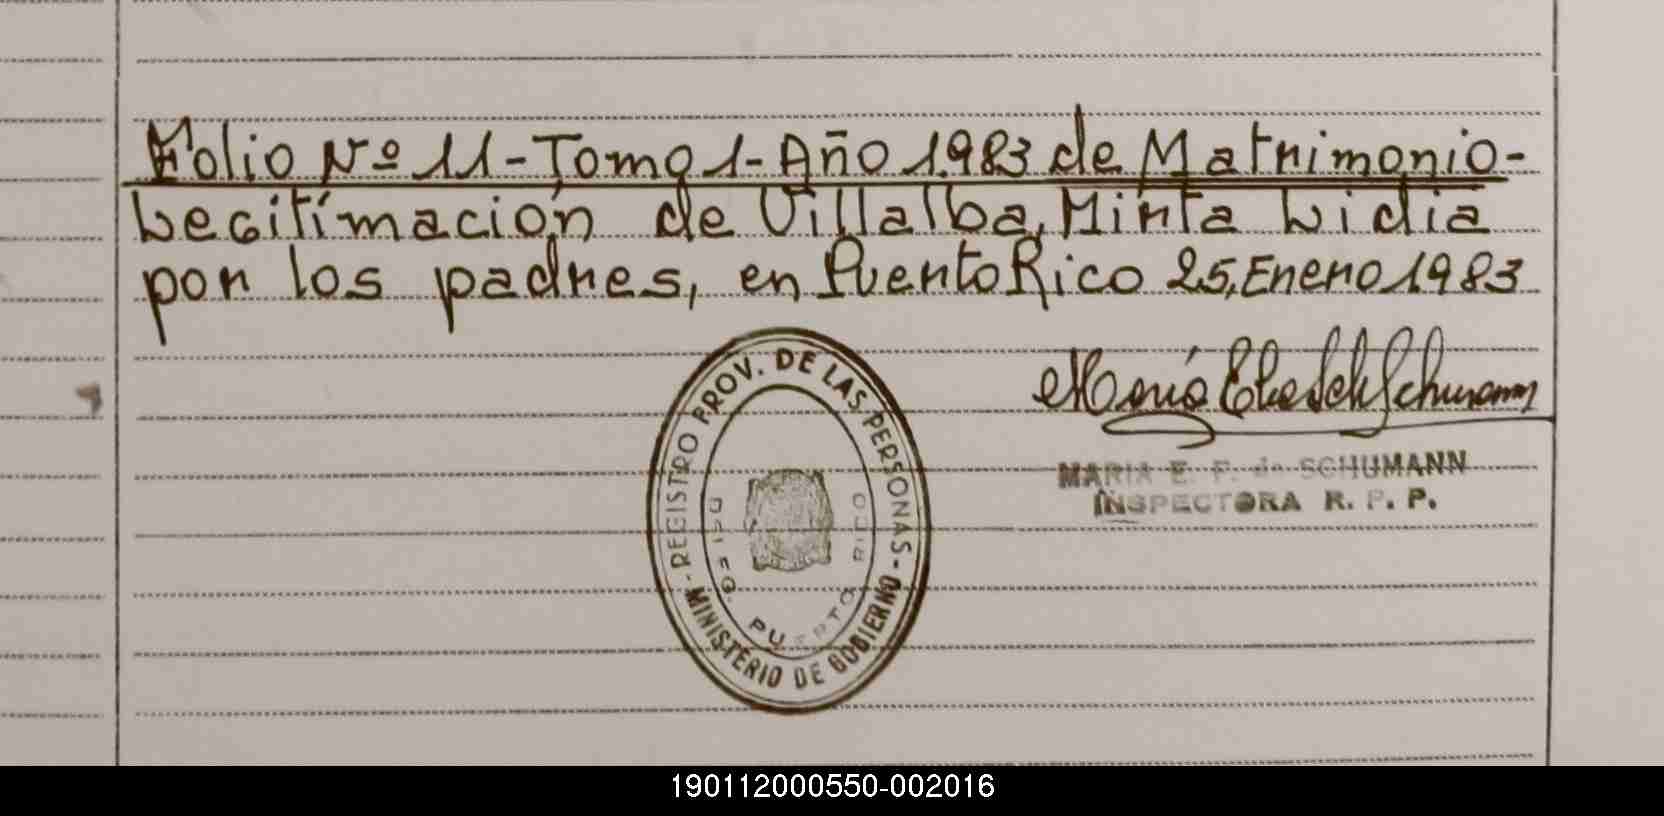 Folio Nº 11-Tomo 1-Año 1983 de Matrimonio-
Legitimación de Villalba, Mirta Lidia
por los padres, en Puerto Rico 25, Enero 1983
María Schumann
MARIA E. P. de SCHUMANN
INSPECTORA R. P. P.
-REGISTRO PROV. DE LAS PERSONAS-
MINISTERIO DE GOBIERNO
PUERTO RICO
190112000550-002016